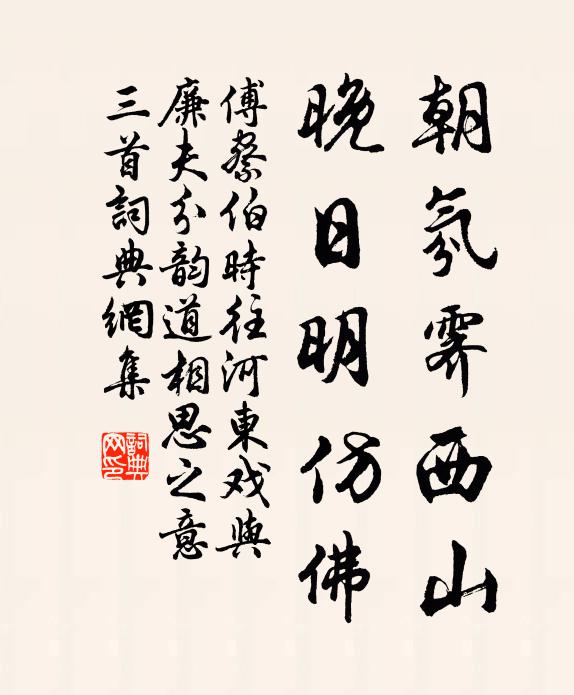 朝氛霽西山
晚日明仿佛
傅察伯時往河東戏與
廉夫分韵道相思之意
三首詞典網集
詞典网印